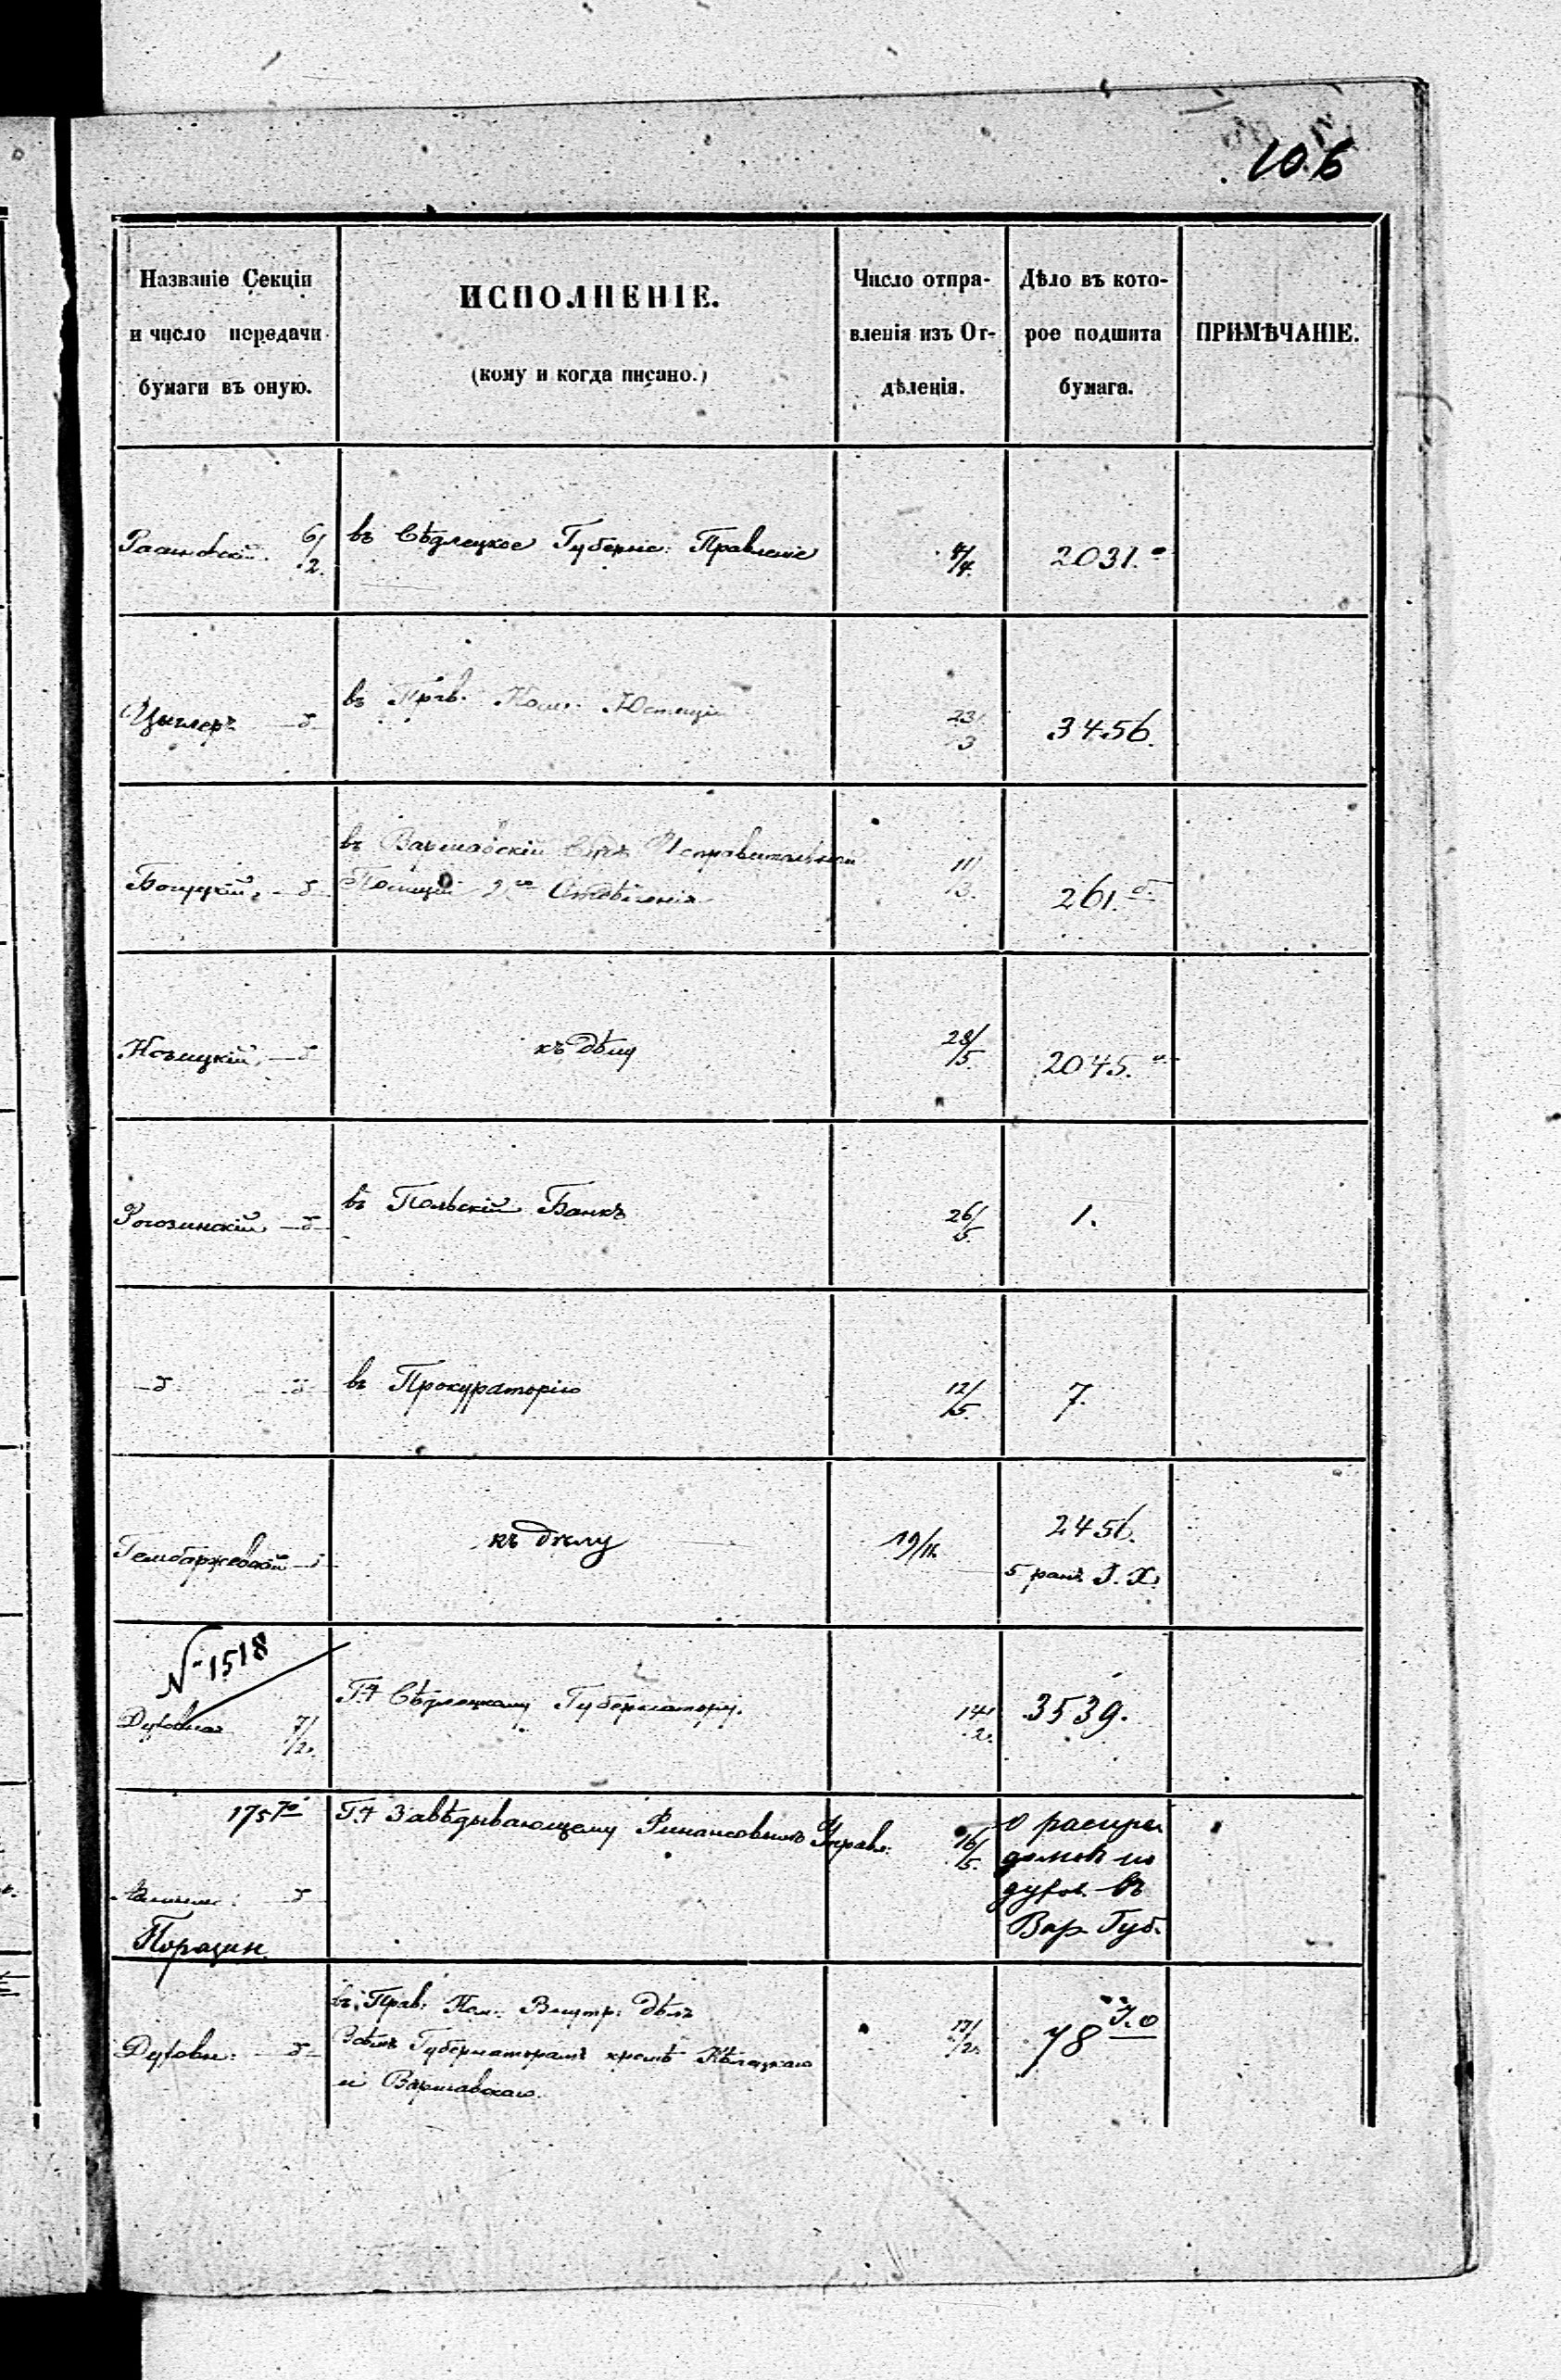 106
Названіе Секціи
и число передачи
бумаги въ оную.
ИСПОЛНЕНІЕ.
(кому и когда писано.)
Число отпра-
вленія изъ От-
дѣленія.
Дѣло въ кото-
рое подшита
бумага.
ПРИМѢЧАНІЕ.
6/2.
въ Сѣдлецкое Губернс: Правленіе
4/4.
2031.
Цыглеръ
въ Прав. Ком. Юстиціи
23/3
3456.
въ Варшавскій Судъ Исправительной
Полиціи 2го Отдѣленія
11/3.
261.
къ дѣлу
28/5.
2045.
Рогозинскій
въ Польскій Банкъ
26/5.
1.
въ Прокураторію
12/5.
7.
Гембаржевскій
къ дѣлу
19/11.
2456.
№ 1518
Духовная 7/2.
Г-у Сѣдлецкому Губернатору.
14/2.
3539.
Г-у Завѣдывающему Финансовымъ Управл:
16/5.
о распре
домовъ по
духов. въ
Вар. Губ.
Духовн:
въ Прав: Ком: Внутр: дѣлъ
Всѣмъ Губернаторамъ кромѣ Кѣлецкаго
и Варшавскаго.
17/2.
78